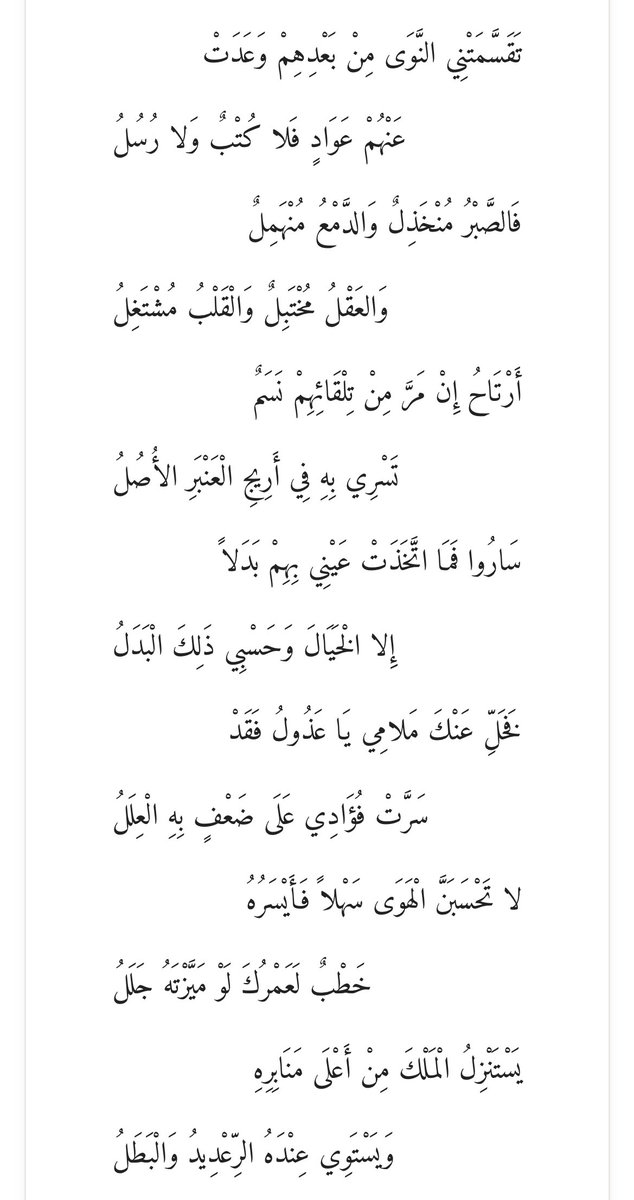 تَقَسَّمَتْنِي النَّوَى مِنْ بَعْدِهِمْ وَعَدَتْ
عَنْهُمْ عَوَادٍ فَلا كُتْبٌ وَلا رُسُلُ
فَالصَّبْرُ مُنْخَذِلٌ وَالدَّمْعُ مُنْهَمِلٌ
وَالعَقْلُ مُخْتَبِلٌ وَالْقَلْبُ مُشْتَغِلُ
أَرْتَاحُ إِنْ مَرَّ مِنْ تِلْقَائِهِمْ نَسَمٌ
تَسْرِي بِهِ فِي أَرِيجِ الْعَنْبَرِ الأُصُلُ
سَارُوا فَمَا اتَّخَذَتْ عَيْنِي بِهِمْ بَدَلاً
إِلا الْخَيَالَ وَحَسْبِي ذَلِكَ الْبَدَلُ
فَخَلِّ عَنْكَ مَلامِي يَا عَذُولُ فَقَدْ
سَرَّتْ فُؤَادِي عَلَى ضَعْفٍ بِهِ الْعِلَلُ
لا تَحْسَبَنَّ الْهَوَى سَهْلاً فَأَيْسَرُهُ
خَطْبٌ لَعَمْرُكَ لَوْ مَيَّزْتَهُ جَلَلُ
يَسْتَنْزِلُ الْمَلْكَ مِنْ أَعْلَى مَنَابِرِهِ
وَيَسْتَوِي عِنْدَهُ الرِّعْدِيدُ وَالْبَطَلُ